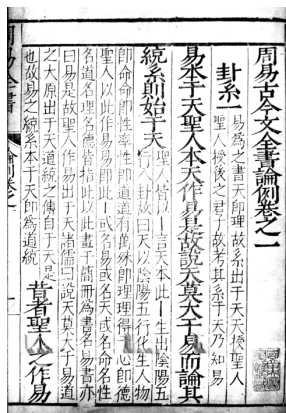 周易古今文全書論例卷之一
卦系一
易爲之書天卽理故系出于天天授聖人
聖人授後之君子故考其系于天乃知易
易本于天聖人本天作易是故說天莫大于易而論其
統系則始于天
聖人皆以一言天本此一生出陰陽五
行人卦故曰天以陰陽五行化生人物
卽命命卽性率性卽道道有萬殊卽理理得于心卽德
聖人以此作易易卽此一或名易或名天或名命名性
名道名理名德皆指此以此畫于簡冊爲書名易書亦
曰易是故聖人作易易出于天諸儒曰說天莫大于易道
之大原出于天道統之傳自于天是
也故易之統系本于天卽爲道統
昔者聖人之作易